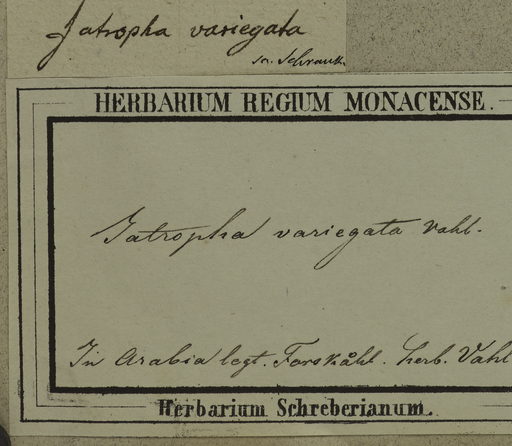 Jatropha variegata
HERBARIUM REGIUM MONACENSE.
Jatropha variegata Vahl.
In Arabia legt. Forskåhl. herb. Vahl
Herbarium Schreberianum.